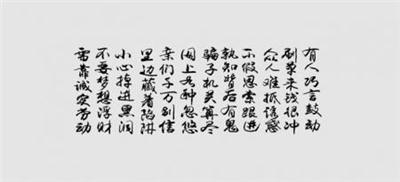 有人巧言鼓动
刷单来钱很冲
众人难抵诱惑
不假思索跟进
孰知背后有鬼
骗子机关算尽
网上各种忽悠
亲们千万别信
里边藏着陷阱
小心掉进黑洞
不要梦想浮财
需靠诚实劳动